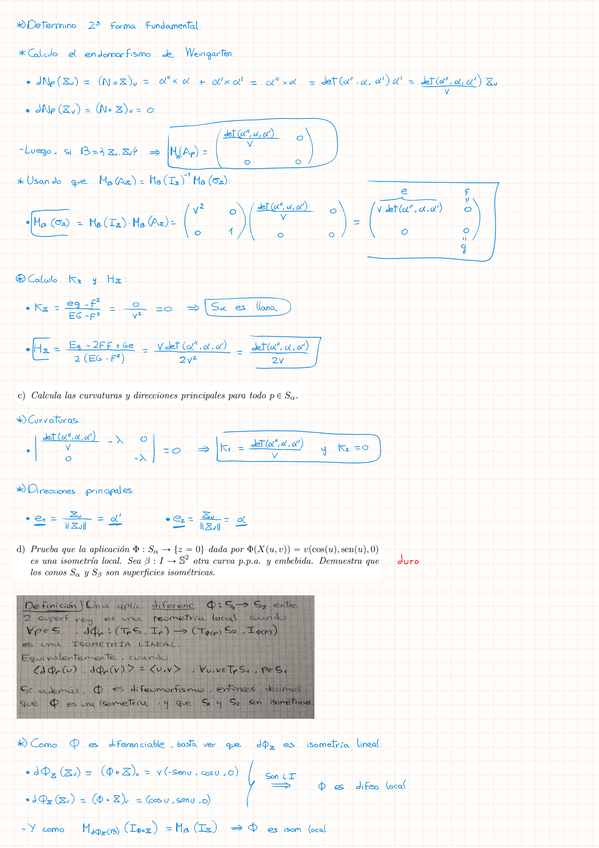 *) Determino 2ª Forma Fundamental:
* Calculo el endomorfismo de Weingarten:
• dNp(Xu) = (N∘X)u = α''×α + α'×α' = α''×α = det(α'',α,α')α' = det(α'',α,α')/v Xu
• dNp(Xv) = (N∘X)v = 0
-Luego, si B={Xu,Xv} ⇒ MB(Ap) = ( det(α'',α,α')/v 0 ; 0 0 )
* Usando que MB(AX) = MB(IX)⁻¹ MB(σX)
• MB(σX) = MB(IX)·MB(AX) = ( v² 0 ; 0 1 ) ( det(α'',α,α')/v 0 ; 0 0 ) = ( v det(α'',α,α') 0 ; 0 0 ) e f g
⊛ Calculo KX y HX
• KX = eg-f²/EG-F² = 0/v² = 0 ⇒ Sα es llana
• HX = Eg-2Ff+Ge/2(EG-F²) = v det(α'',α,α')/2v² = det(α'',α,α')/2v
c) Calcula las curvaturas y direcciones principales para todo p ∈ Sα.
*) Curvaturas:
• | det(α'',α,α')/v -λ 0 ; 0 -λ | = 0 ⇒ K1 = det(α'',α,α')/v y K2 = 0
*) Direcciones principales:
• e1 = Xu/||Xu|| = α' • e2 = Xv/||Xv|| = α
d) Prueba que la aplicación Φ : Sα → {z = 0} dada por Φ(X(u, v)) = v(cos(u), sen(u), 0)
es una isometría local. Sea β : I → S² otra curva p.p.a. y embebida. Demuestra que
los conos Sα y Sβ son superficies isométricas.
duro
Definición) Una aplic. diferenc. Φ: S1 → S2 entre
2 superf reg es una isometría local cuando
∀p∈S, dΦp: (TpS, Ip) → (TΦ(p)S2, IΦ(p))
es una ISOMETRÍA LINEAL.
Equivalentemente, cuando
<dΦp(u), dΦp(v)> = <u,v> ∀u,v∈TpS1, p∈S1
Si además, Φ es difeomorfismo, entonces decimos
que Φ es una isometría, y que S1 y S2 son isométricas.
*) Como Φ es diferenciable, basta ver que dΦX es isometría lineal:
• dΦX(Xu) = (Φ∘X)u = v(-senu, cosu, 0)
Son LI ⇒ Φ es difeo local
• dΦX(Xv) = (Φ∘X)v = (cosu, senu, 0)
- Y como MdΦX(B)(IΦ∘X) = MB(IX) ⇒ Φ es isom local